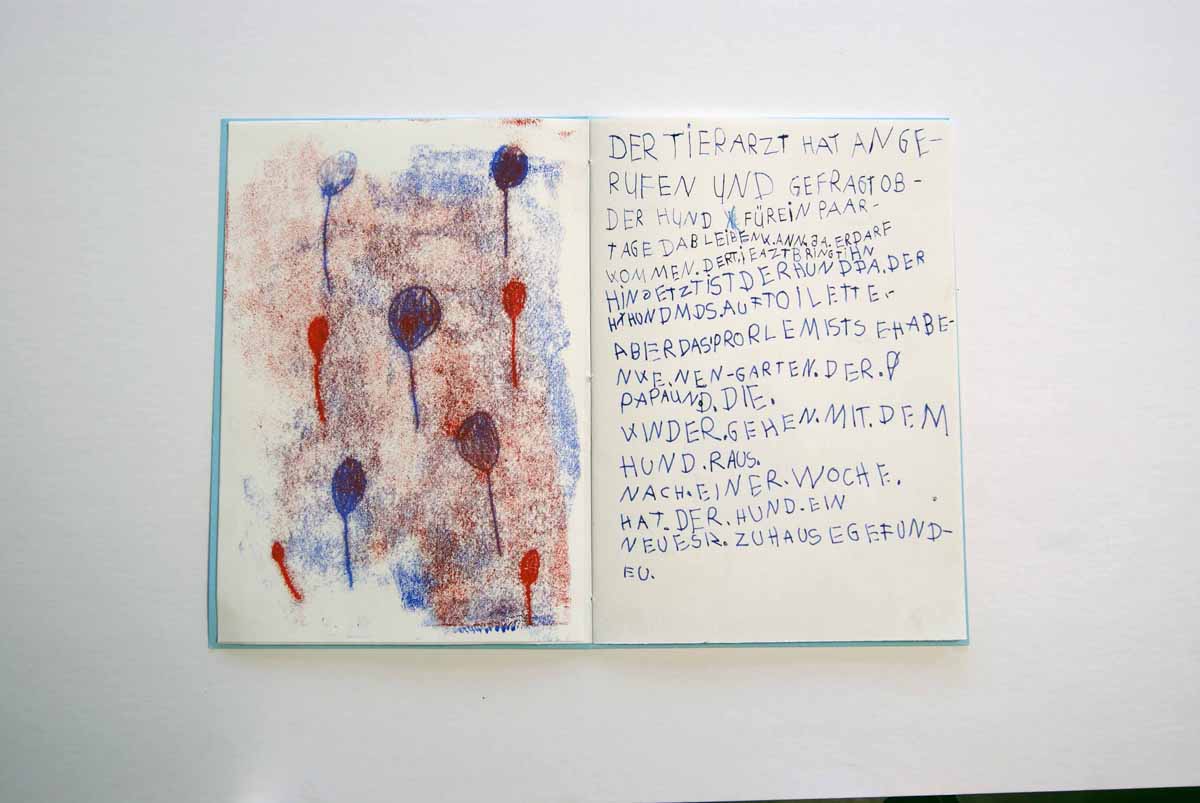 DER TIERARZT HAT ANGE-
RUFEN UND GEFRAGT OB-
DER HUND FÜR EIN PAAR-
TAGE DABLEIBEN KANN. JA. ER DARF
KOMMEN. DER TIEAZT BRINGT IHN
HIN JETZT IST DER HUND DA. DER
HUND MDS. AUF TOILETTE.-
ABER DAS PRORLEM IST SEHABE-
NKE.NEN-GARTEN. DER.
PAPA UND. DIE.
KINDER. GEHEN. MIT. DEM
HUND. RAUS.
NACH. EINER. WOCHE.
HAT. DER. HUND. EIN
NEUES. ZUHAUSE GEFUND-
EU.